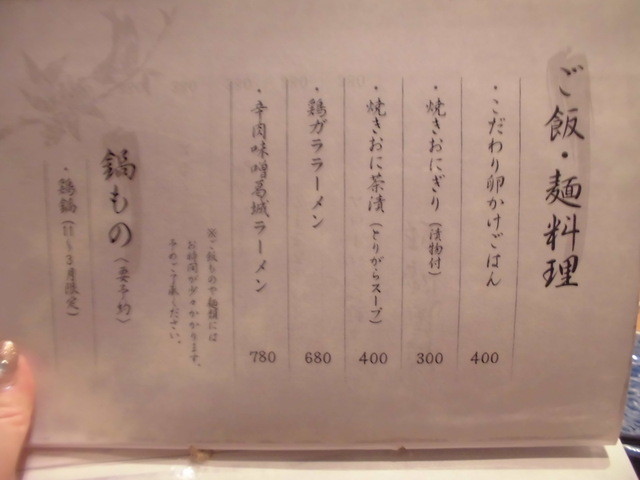 ご飯・麺料理
・こだわり卵かけごはん 400
・焼きおにぎり（漬物付） 300
・焼きおに茶漬（とりがらスープ） 400
・鶏ガララーメン 680
・辛肉味噌葛城ラーメン 780
※ご飯ものや麺類には
お時間が少々かかります。
予めご了承ください。
鍋もの（要予約）
・鶏鍋（11～3月限定）